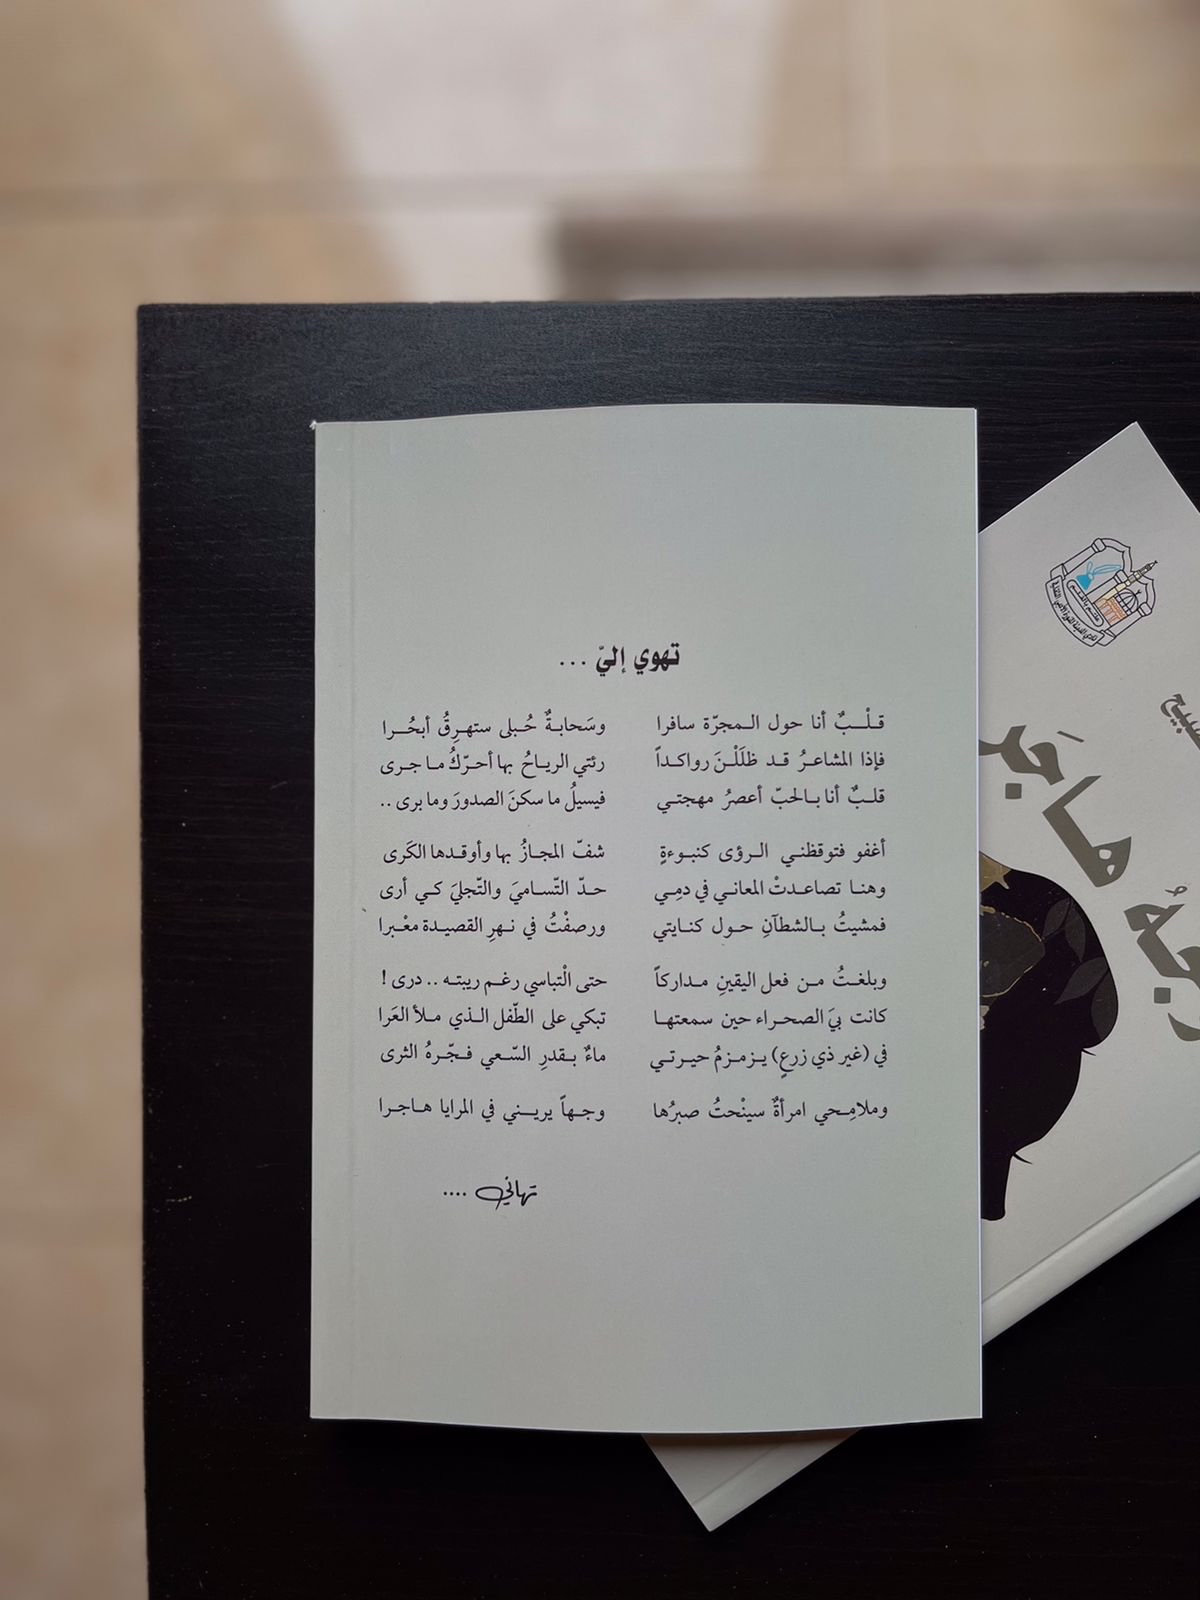 تهوي إليّ ...
قلْبٌ أنا حول المجرّة سافرا وسَحابةٌ حُبلى ستهرِقُ أبحُرا
فإذا المشاعرُ قد ظلَلْنَ رواكداً رئتي الرياحُ بها أحرّكُ ما جرى
قلبٌ أنا بالحبّ أعصرُ مهجتي فيسيلُ ما سكنَ الصدورَ وما برى ..
أغفو فتوقظني الرؤى كنبوءةٍ شفّ المجازُ بها وأوقدها الكَرى
وهنا تصاعدتْ المعاني في دمِي حدّ التّساميَ والتّجليَ كي أرى
فمشيتُ بالشطآنِ حول كنايتي ورصفْتُ في نهرِ القصيدة معْبرا
وبلغتُ من فعل اليقينِ مداركاً حتى الْتباسي رغم ريبته .. درى !
كانت بيَ الصحراء حين سمعتها تبكي على الطّفل الذي ملأ العَرا
في (غير ذي زرعٍ) يزمزمُ حيرتي ماءٌ بقدرِ السّعي فجّرهُ الثرى
وملامِحي امرأةٌ سينْحتُ صبرُها وجهاً يريني في المرايا هاجرا
تهاني ....
هاجَر